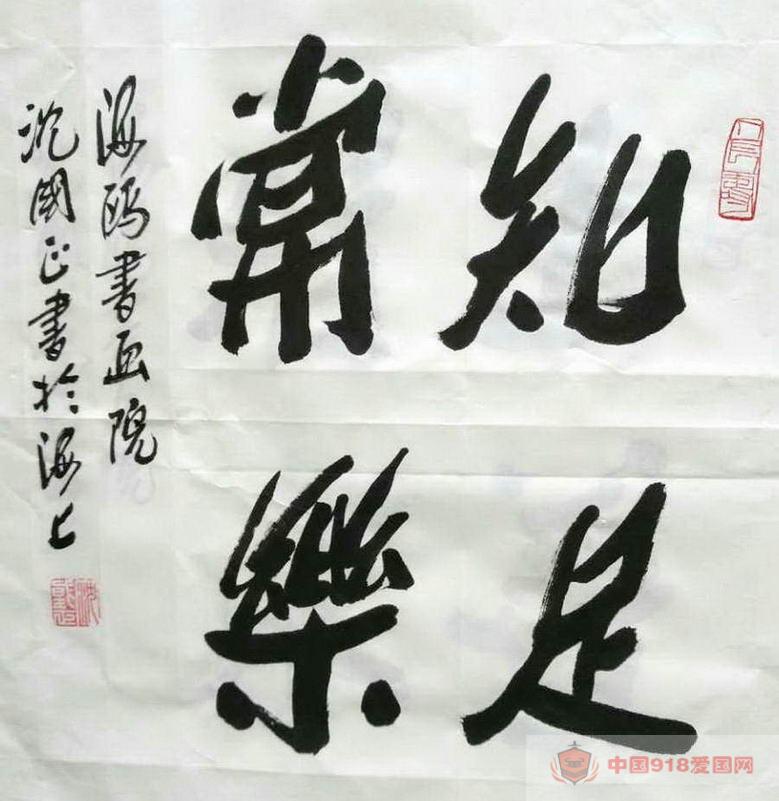 知足
常樂
海鸥書画院
沈國正書於海上
中国918爱国网